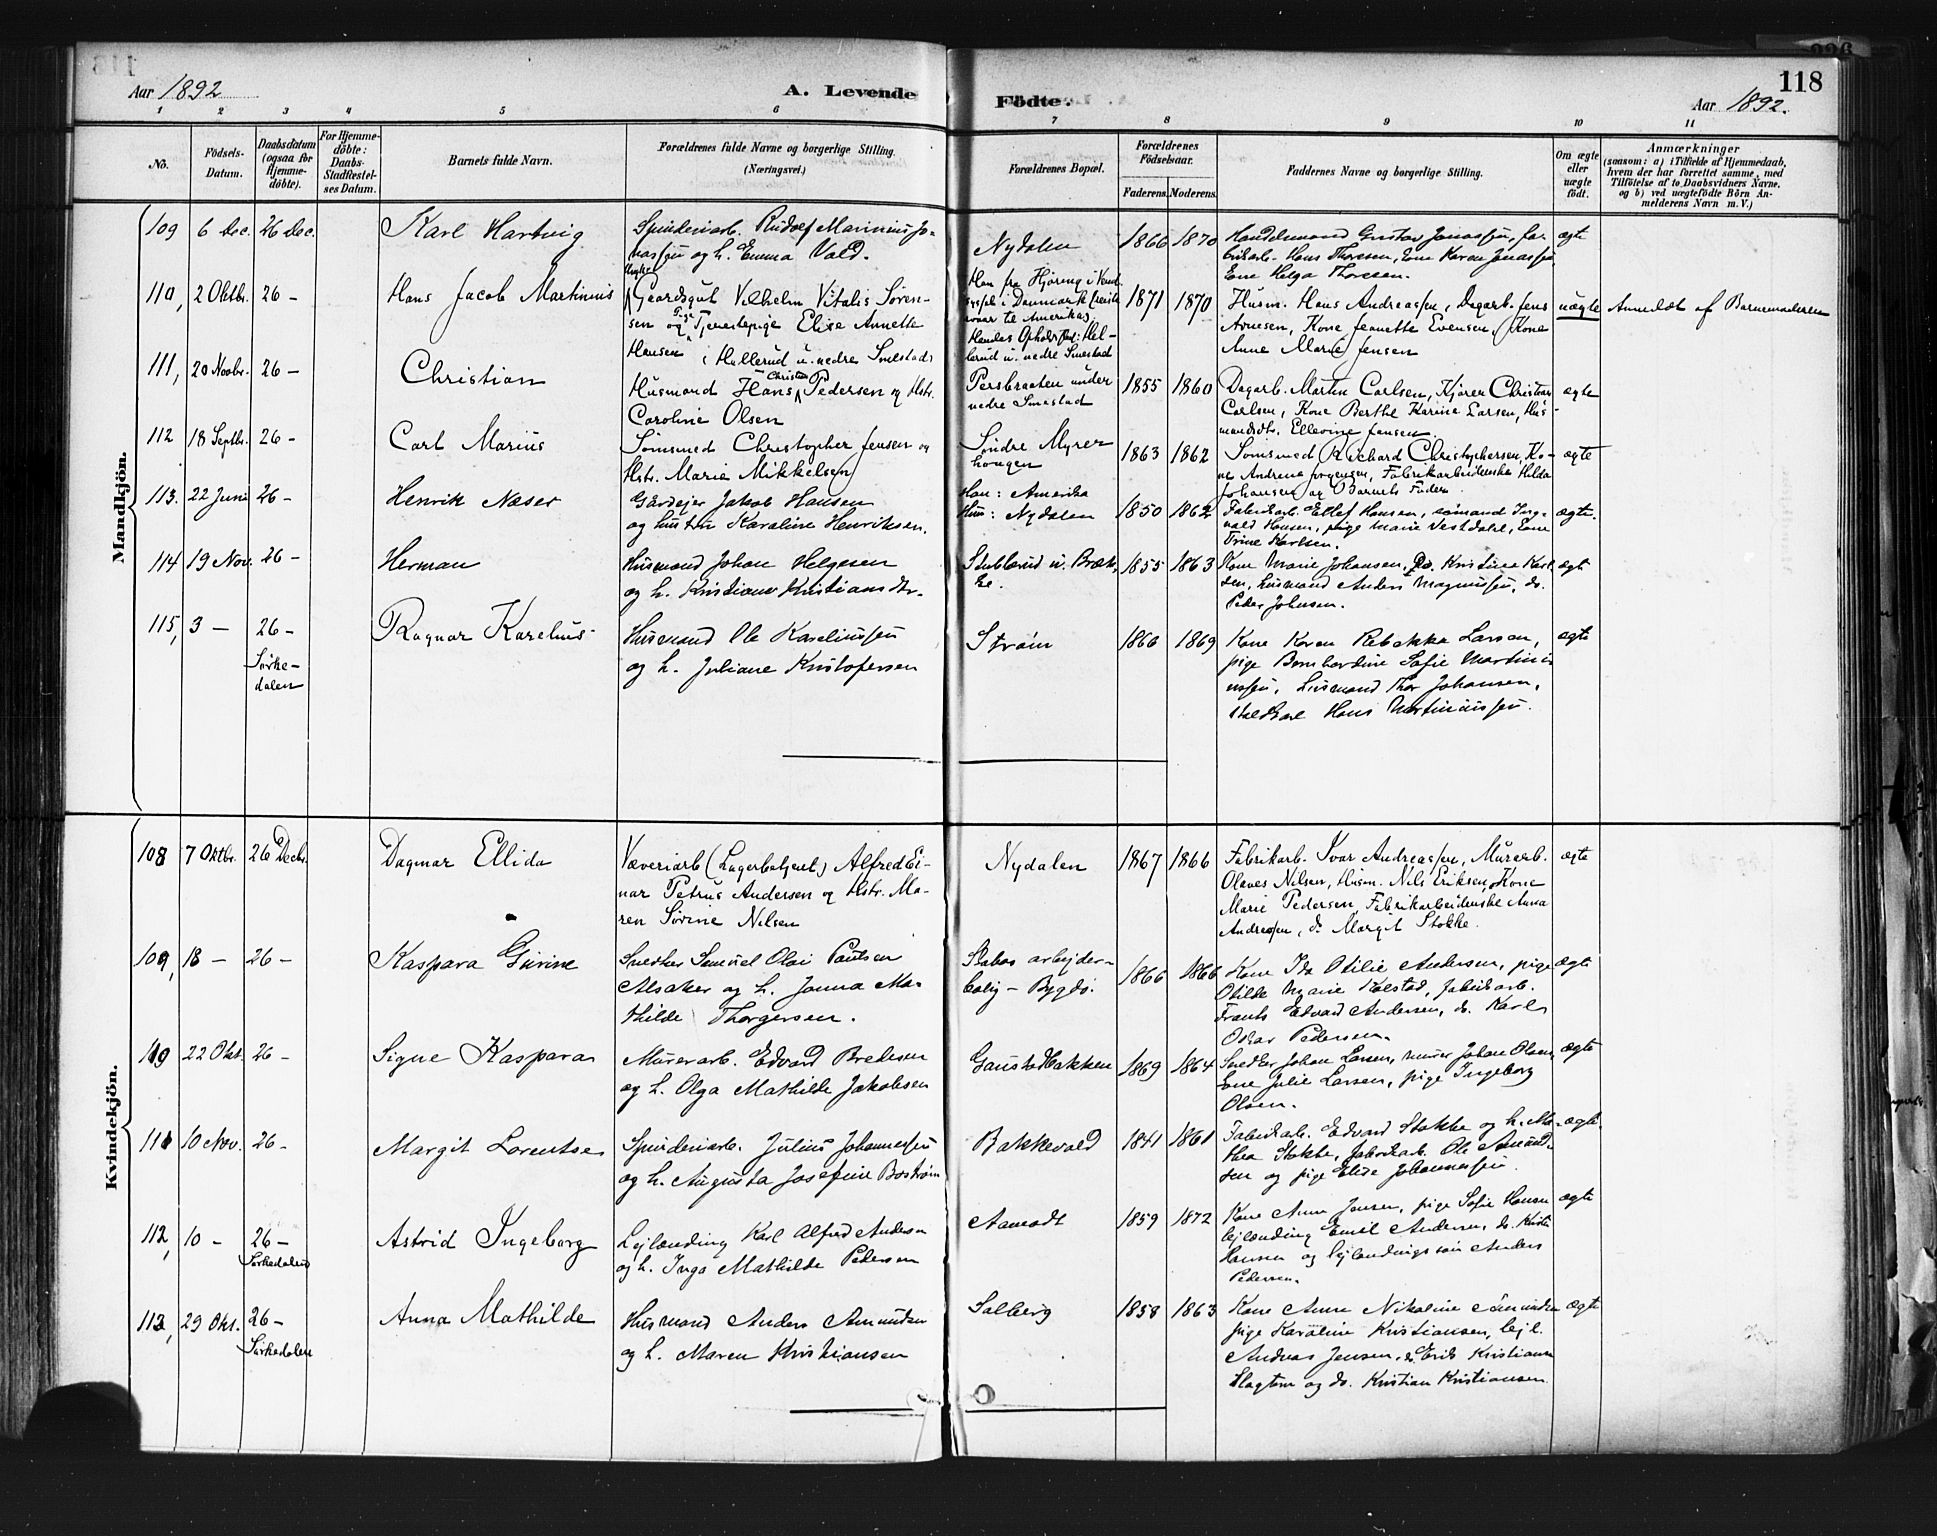 118
Aar 1892
A. Levende Födte.
Aar 1892.
1 2 3 4 5 6 7 8 9 10 11
No.
Födsels-Datum.
Daabsdatum (ogsaa for Hjemmedöbte).
For Hjemmedöbte: Daabs-Stadfæstelses Datum.
Barnets fulde Navn.
Forældrenes fulde Navne og borgerlige Stilling.
(Næringsvei.)
Forældrenes Bopæl.
Forældrenes Födselsaar.
Faderens. Moderens.
Faddernes Navne og borgerlige Stilling.
Om ægte eller uægte födt.
Anmærkninger
(saasom: a) i Tilfælde af Hjemmedaab,
hvem der har forrettet samme, med
Tilföielse af to Daabsvidners Navne,
og b) ved uægtefödte Börn Anmelderens Navn m. V.)
Mandkjön.
109 6 Dec. 26 Dec. Karl Hartvig
Spinderiarb. Rudolf Marinius Jo-
nassen og h. Emma Vold.
Nydalen 1866 1870
Handelsmand Gustav Jonassen, fa-
brikarb. Hans Thoresen, Ene Karen Jonassen
Ene Helga Thoresen.
ægte
110, 2 Oktbr. 26 - Hans Jacob Martinius
Gaardsgut Vilhelm Vitalis Søren-
sen og Pige Tjenestepige Elise Annette
Hansen, Hallerud u. nedre Smestad
Han fra Hjøring i Vend-
syssel i Danmark (reist
til Amerika).
Hendes Opholdssted: Hal-
lerud u. nedre Smestad
1871 1870
Husm. Hans Andreassen, Dagarb. Jens
Arnesen, Kone Jeanette Evensen, Kone
Anne Marie Jensen
uægte
Anmeldt af Barnemoderen
111, 20 Novbr. 26 - Christian
Husmand Hans Christian Pedersen og Hstr.
Caroline Olsen
Persbraaten under
nedre Smestad
1855 1860
Dagarb. Martin Carlsen, Kjører Christian
Carlsen, Kone Berthe Karine Larsen, Hus-
mandsdtr. Ellevine Jensen
ægte
112 18 Septbr. 26 - Carl Marius
Sømsmed Christopher Jensen og
Hstr. Marie Mikkelsen
Søndre Myrer
haugen
1863 1862
Sømsmed Richard Christophersen, Ko-
ne Andrine Jørgensen, Fabrikarbeiderske Hilda
Johansen og Barnets Fader.
ægte
113. 22 Juni 26 - Henrik Næser
Gårdejer Jakob Hansen
og hustru Karoline Henriksen.
Han: Amerika
Hun: Nydalen
1850 1862
Fabrikarb. Ellef Hansen, sömand Ing-
vald Hansen, pige Marie Vestdahl, Ene
Trine Karlsen.
ægte.
114 19 Nov. 26 - Herman
Husmand Johan Helgesen
og h. Kristiane Kristiansdtr.
Stublerud u. Bræk-
ke.
1855 1863
Kone Marie Johansen, Do. Kristine Karl-
sen, husmand Anders Magnussen, do.
Peder Johnsen.
ægte
115, 3 - 26 -
Sørke-
dalen
Ragnar Karelius
Husmand Ole Kareliussen
og h. Juliane Kristofersen
Strøm 1866 1869
Kone Karen Rebekka Larsen,
pige Bernhardine Sofie Martini-
ussen, husmand Thor Johansen,
Hans Martiniussen.
ægte
Kvindekjön.
108 7 Oktbr. 26 Decbr. Dagmar Ellida
Væveriarb (Lagerbetjent) Alfred Ei-
nar Petrus Andersen og Hstr. Ma-
ren Sørine Nilsen
Nydalen 1867 1866
Fabrikarb. Ivar Andreassen, Murarb.
Olaves Nilsen, Husm. Nils Eriksen, Kone
Marie Pedersen, Fabrikarbeiderske Anna
Andreassen, do Margit Stokke.
ægte
109, 18 - 26 - Kaspara Gurine
Snedker Samuel Olai Paulsen
Alsaker og h. Janna Ma-
thilde Thorgersen.
Slabos arbejder-
bolig - Bygdö.
1866 1866
Kone Ida Otilie Andersen, pige
Otilde Marie Kolstad, fabrikarb.
Frants Edvard Andersen, do. Karl
Oskar Pedersen.
ægte
110 22 Okt. 26 - Signe Kaspara
Murerarb. Edvard Bredesen
og h. Olga Mathilde Jakobsen
Gaustadbakken 1869 1864
Snedker Johan Larsen, murer Johan Olsen,
Ene Julie Larsen, pige Ingeborg
Olsen.
ægte
111 10 Nov. 26 - Margit Lorentse
Spinderiarb. Julius Johannessen
og h. Augusta Josefine Boström
Bakkevold 1841 1861
Fabrikarb. Edvard Stokke og h. Ma-
thea Stokke, fabrikarb. Ole Amund-
sen og pige Elise Johannessen.
ægte
112, 10 - 26 -
Sørkedalen
Astrid Ingeborg
Lejlænding Karl Alfred Andersen
og h. Inga Mathilde Pedersen
Aamodt 1859 1872
Kone Anne Jensen, pige Sofie Hansen
lejlænding Emil Andersen, do. Kristi
Hansen og lejlændingssøn Anders
Pedersen.
ægte
113, 29 Okt. 26 -
Sørkedalen
Anna Mathilde
Husmand Anders Amundsen
og h. Maren Kristiansen
Solberg 1858 1863
Kone Anne Nikoline Amundsen
pige Karoline Kristiansen, lejl.
Andreas Jensen, do Erik Kristiansen
Slagtern og do. Kristian Kristiansen.
ægte